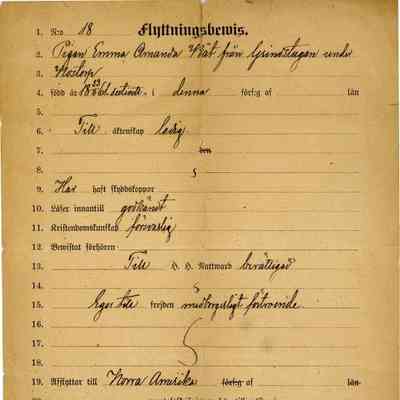 Flyttningsbewis.
1. N:o 18
2. Pigan Emma Amanda Kät från Grindstugan under
3. Mostorp
4. född år 18 i denna förs:g af län
5.
6. Till äktenskap ledig
7. den
8.
9. Har haft skyddskoppor
10. Läser innantill godkändt
11. Kristendomskunskap försvarlig
12. Bewistat förhören
13. Till H. H. Nattward berättigad
14.
15. Eger till frejden medborgerligt förtroende
16.
17.
18.
19. Afflyttar till Norra Amerika förs:g af län